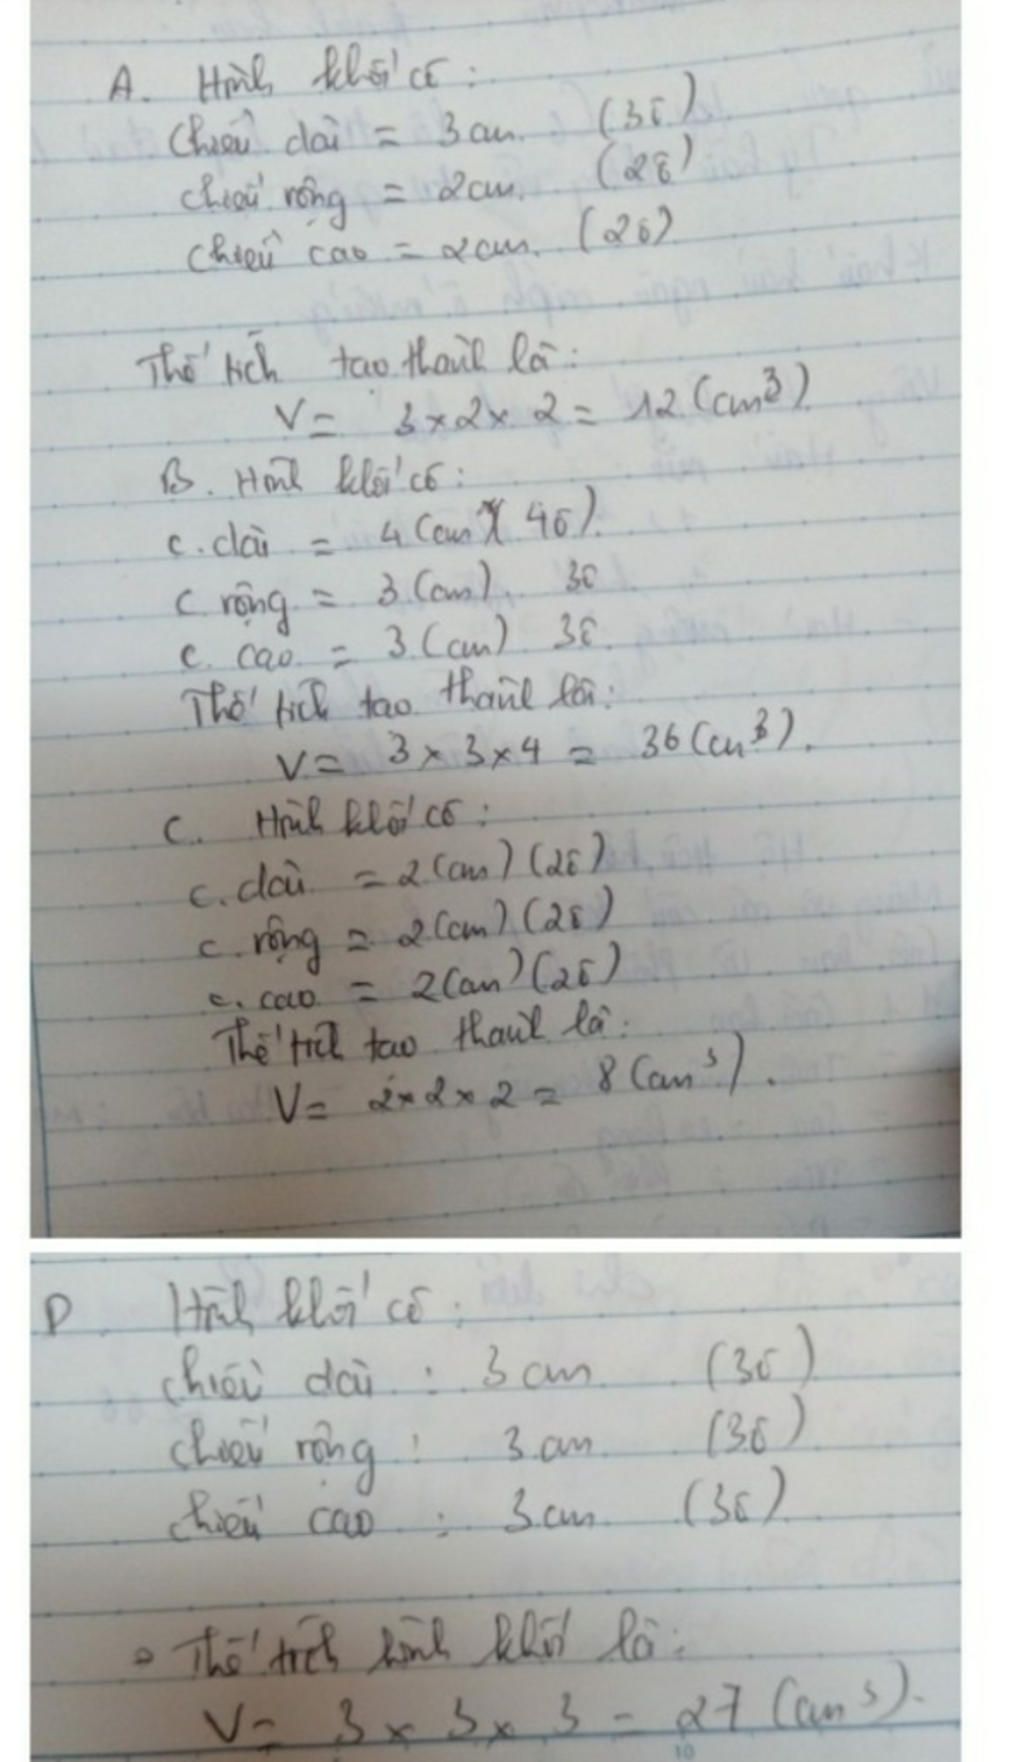 A. Hình khối có :
Chiều dài = 3cm (3ô)
chiều rộng = 2cm. (2ô)
chiều cao = 2cm. (2ô)
Thể tích tạo thành là :
V = 3 × 2 × 2 = 12 (cm³)
B. Hình khối có :
c. dài = 4 (cm) (4ô).
c. rộng = 3 (cm) 3ô
c. cao = 3 (cm) 3ô.
Thể tích tạo thành là :
V = 3 × 3 × 4 = 36 (cm³).
C. Hình khối có :
c. dài = 2 (cm) (2ô)
c. rộng = 2 (cm) (2ô)
c. cao = 2 (cm) (2ô)
Thể tích tạo thành là :
V = 2 × 2 × 2 = 8 (cm³).
D Hình khối có :
chiều dài : 3 cm (3ô)
chiều rộng : 3 cm (3ô)
chiều cao : 3 cm (3ô)
Thể tích hình khối là :
V = 3 × 3 × 3 = 27 (cm³).
10